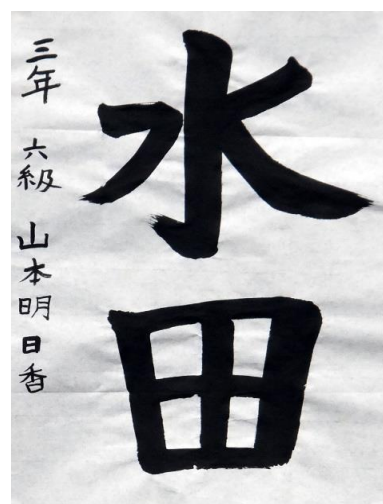 水田
三年 六級 山本明日香